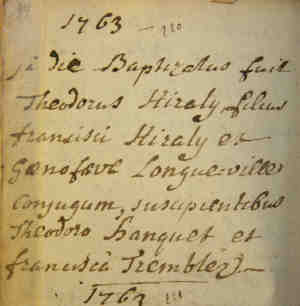 1763
die Baptizatus fuit
Theodorus Hiraly filius
francisci Hiraly et
Genofevæ Longue=ville
Conjugum, suscipientibus
Theodoro hanquet et
francisca Tremblez
1763